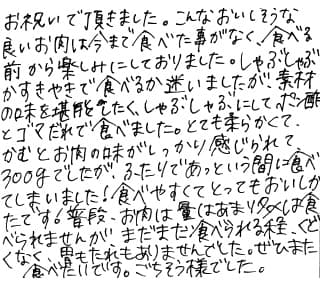 お祝いで頂きました。こんなおいしそうな
良いお肉は今まで食べた事がなく、食べる
前から楽しみにしておりました。しゃぶしゃぶ
かすきやきで食べるか迷いましたが、素材
の味を堪能したく、しゃぶしゃぶにして、ポン酢
とゴマだれで食べました。とても柔らかくて、
かむとお肉の味がしっかり感じられて
300gでしたが、ふたりであっという間に食べ
てしまいました!食べやすくてとってもおいしか
たです。普段、お肉は量はあまり多くは食
べられませんが、まだまだ食べられる程、くど
くなく、胃もたれもありませんでした。ぜひまた
食べたいです。ごちそう様でした。